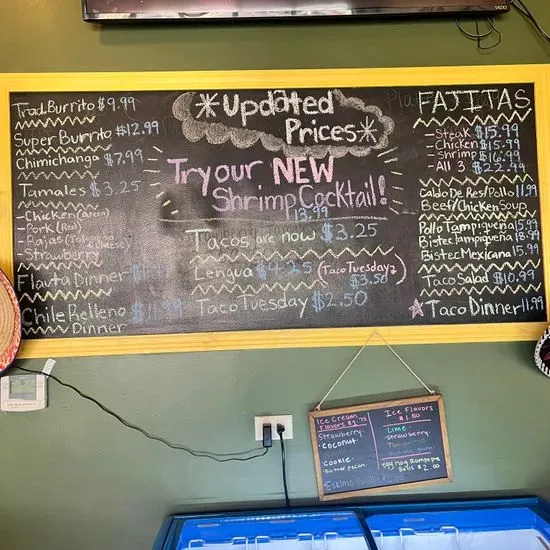 Trad. Burrito $9.99
Super Burrito $12.99
Chimichanga $7.99
Tamales $3.25
-Chicken (Green)
-Pork (Red)
-Rajas
cheese)
-Strawberry
Flauta Dinner
Chile Relleno
Dinner
*Updated
Prices*
Try our NEW
Shrimp Cocktail!
13.99
Tacos are now $3.25
Lengua $4.25 (Taco Tuesday
$3.50
Taco Tuesday $2.50
FAJITAS
-Steak $15.99
-Chicken $15.99
-Shrimp $16.99
-All 3 $22.99
Caldo De Res/Pollo 11.99
Beef/Chicken Soup
Pollo Tampiqueña 15.99
Bistec Tampiqueña 18.99
Bistec Mexicana 15.99
Taco Salad $10.99
Taco Dinner 11.99
Ice Cream
Flavors $1.75
Strawberry
-coconut
-cookie
-Butter pecan
-Eskimo Vanilla
Ice Flavors
$1.50
-Lime
-Strawberry
-Tamarind
-Bubble gum
egg nog Rompope
Bolis $2.00